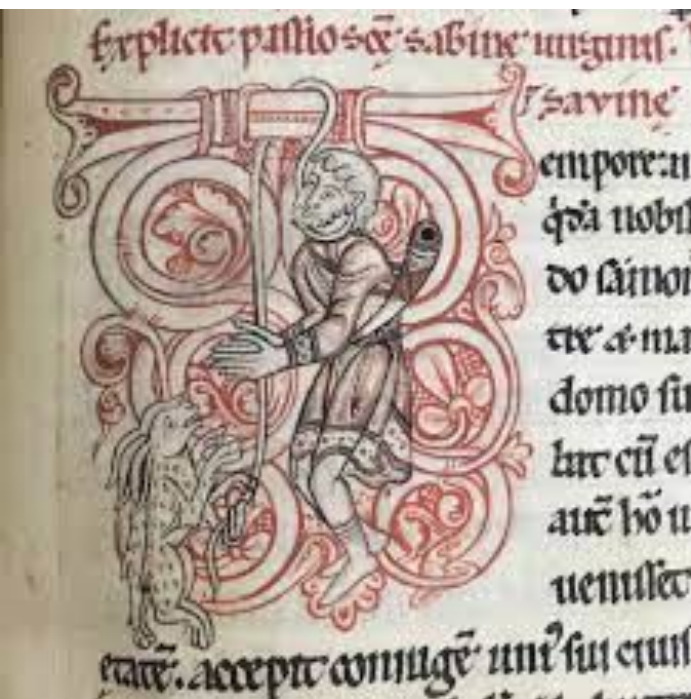 Explicit passio scē sabine uirginis.
savine
empore: 
q̇da nobil
do
tre & ma
domo su
lut cū es
aut hō u
uenisset
etatē. accepit coniugē uni' sui ciuis